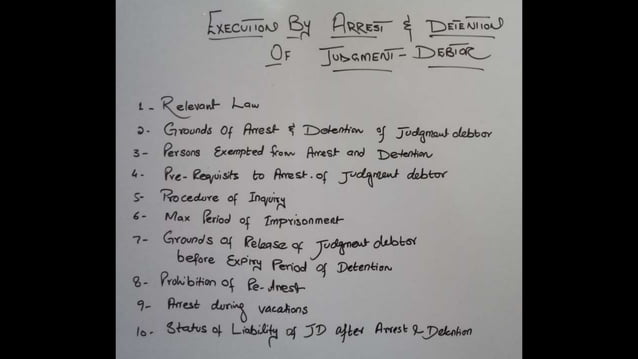 EXECUTION By ARREST & DETENTION
OF JUDGMENT-DEBTOR
1- Relevant Law
2- Grounds Of Arrest & Detention of Judgment debtor
3- Persons Exempted from Arrest and Detention
4- Pre-Requisits to Arrest. of Judgment debtor
5- Procedure of Inquiry
6- Max Period of Imprisonment
7- Grounds of Release of Judgment debtor
before Expiry Period of Detention
8- Prohibition of Re-Arrest
9- Arrest during vacations
10- Status of Liability of JD after Arrest & Detention